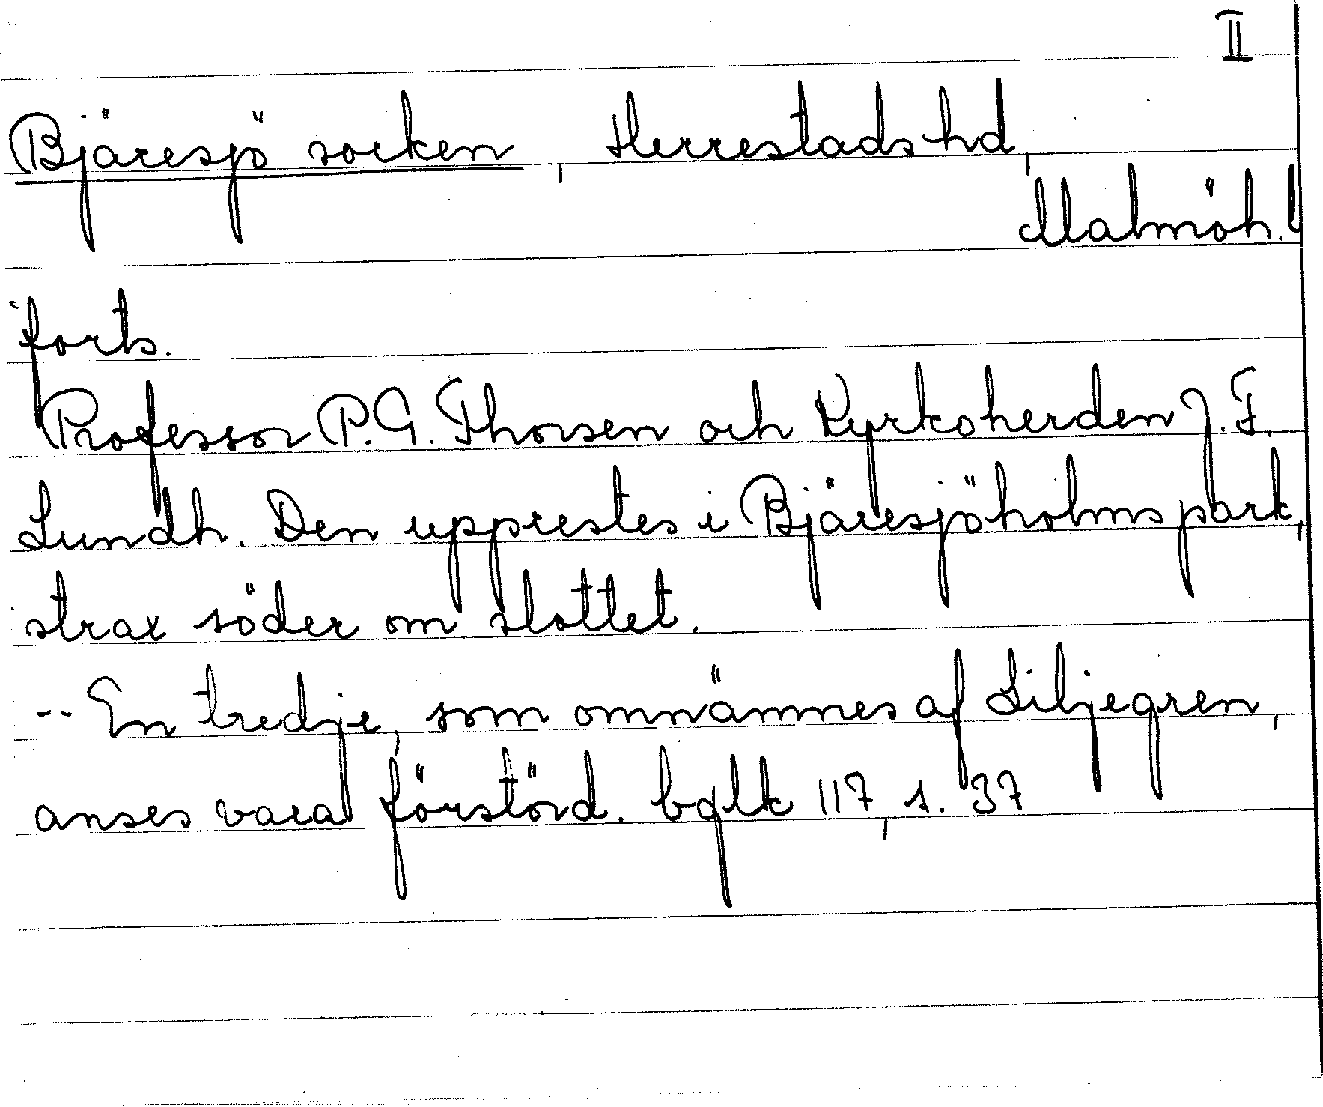 II
Bjäresjö socken, Herrestads hd,
Malmöh. l
forts.
Professor P. G. Thorsen och Kyrkoherden J. F.
Lundh. Den upprestes i Bjäresjöholms park,
strax söder om slottet.
-- En tredje, som omnämnes af Liljegren,
anses vara förstörd. bglk 117, s. 37